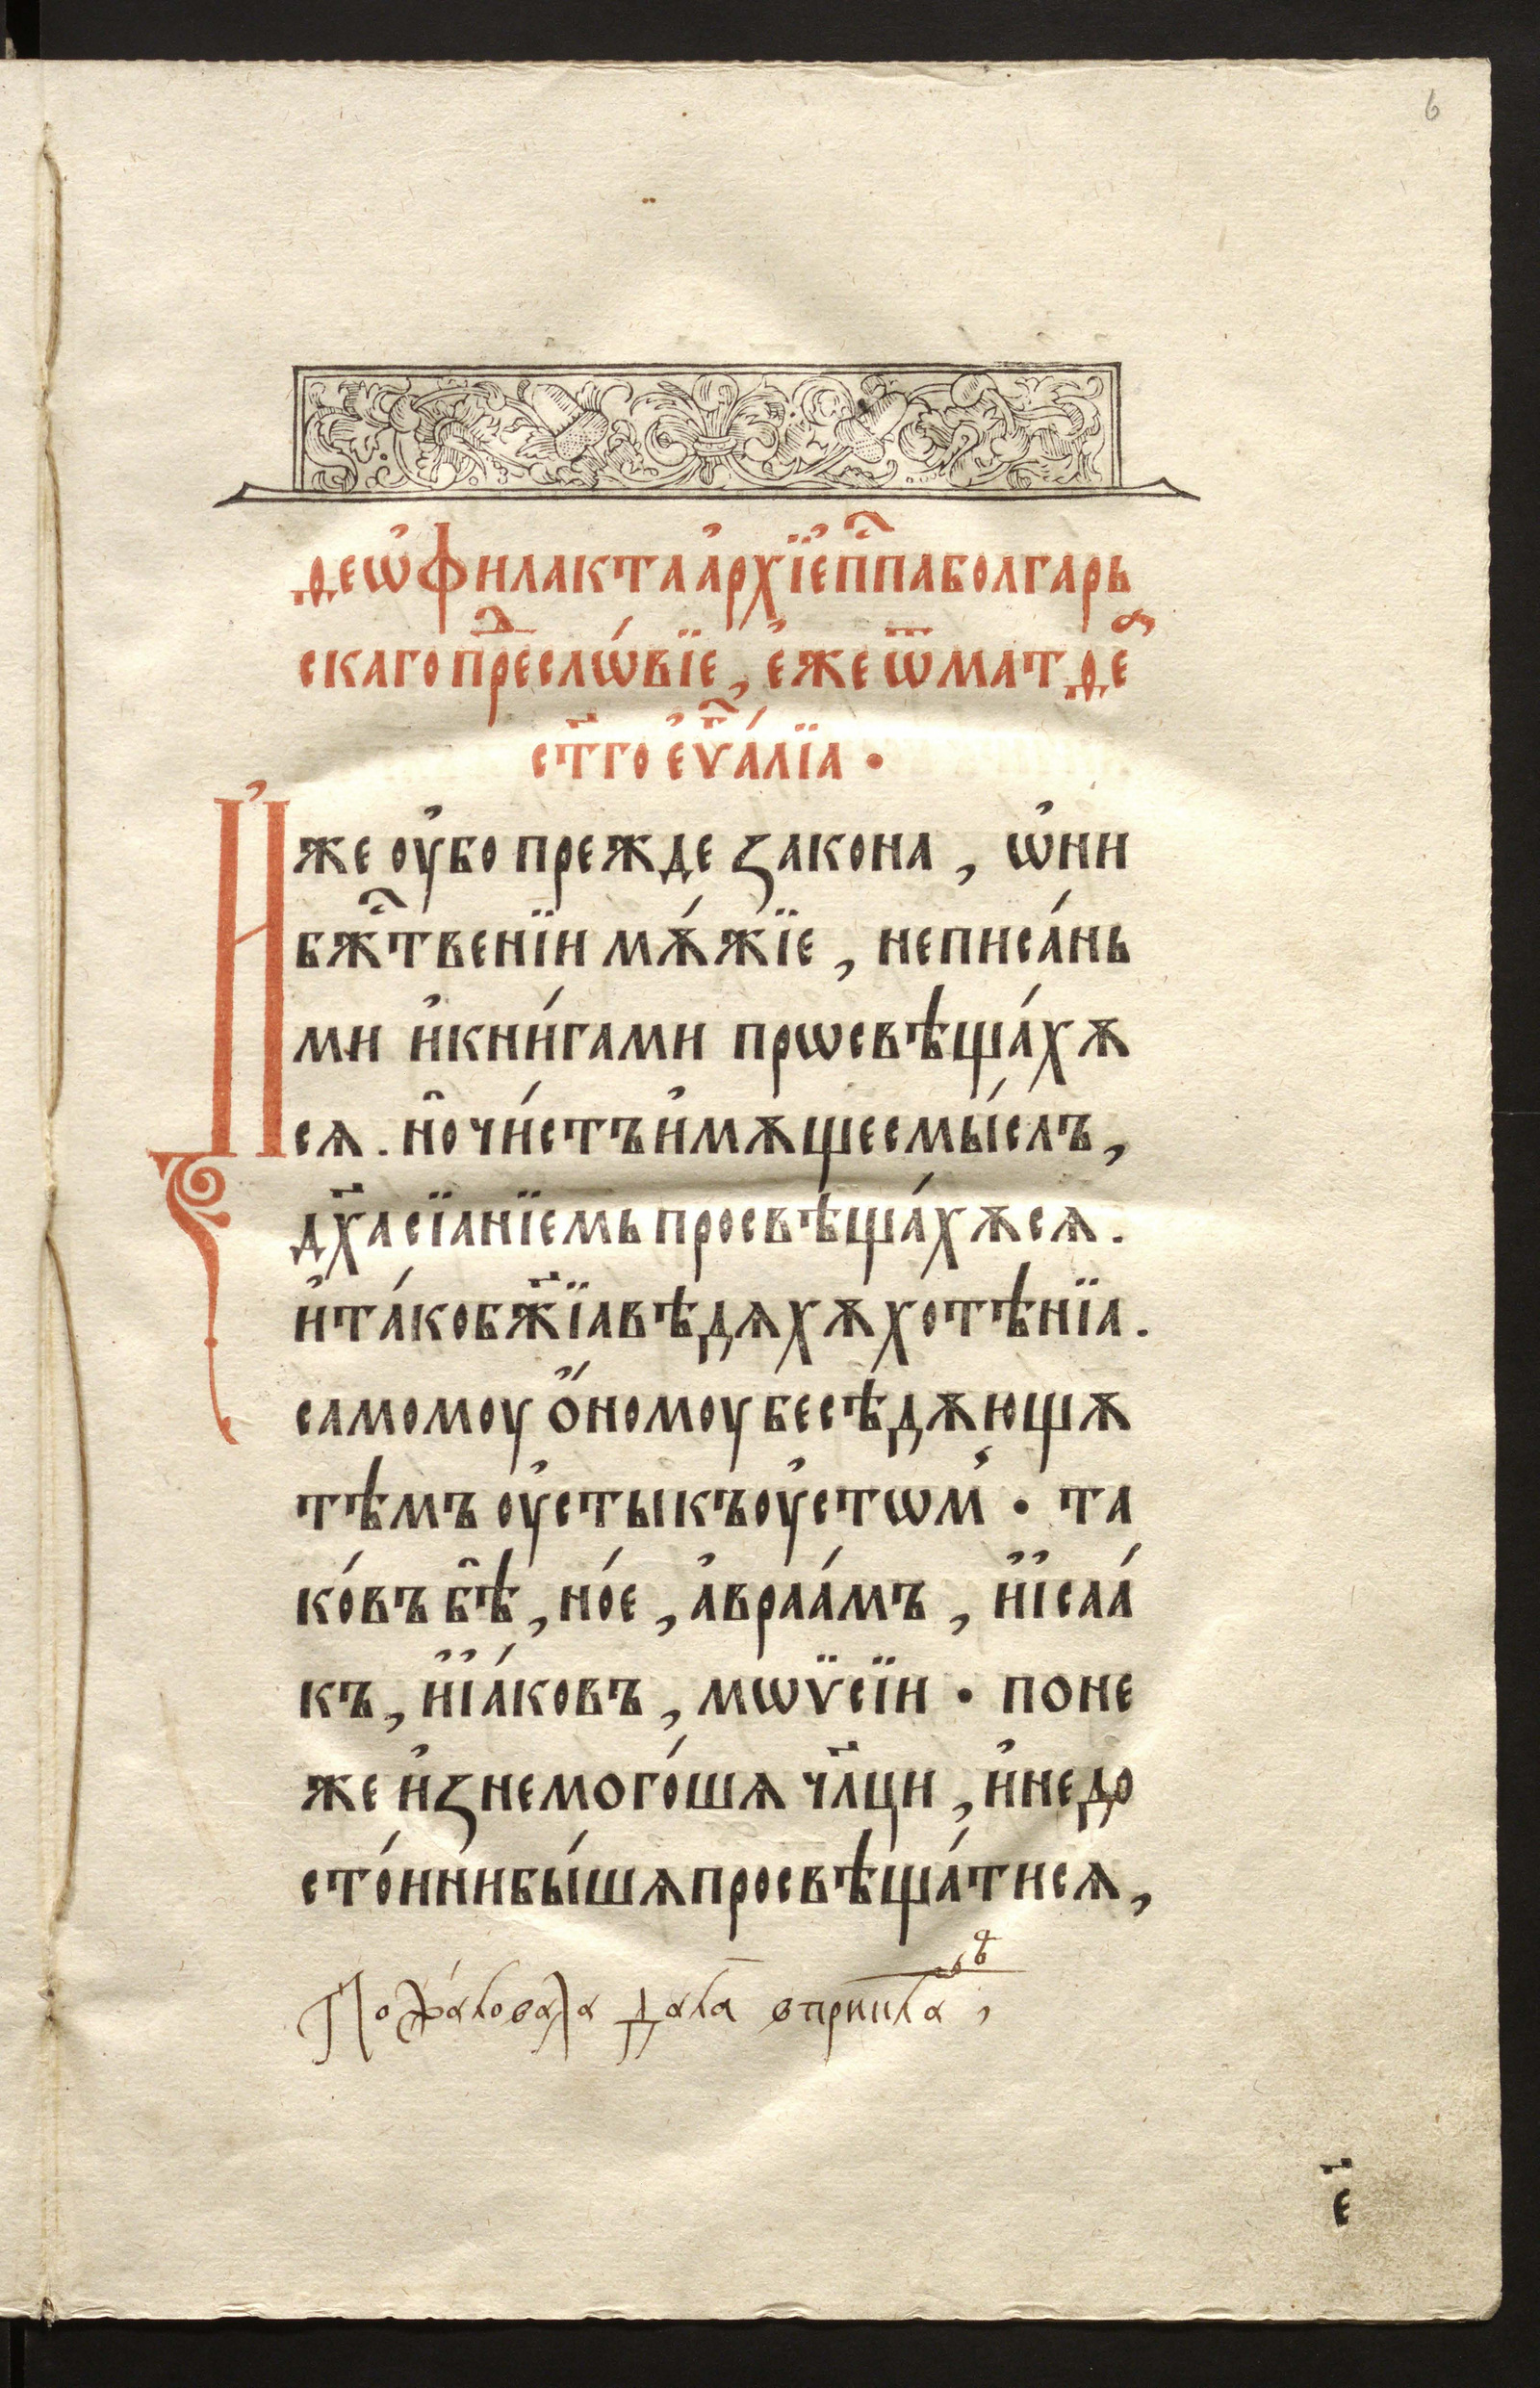 6
Ѳеѡ҆филакта а҆рхїе҆пⷭ҇па болгарь
скаго преⷣслѡ́вїе, е҆же ѿ матѳеⷽ
ст҃го е҆ѵⷢ҇а́лїа •
И҆же оу҆бо прежде закона, ѡ҆ни
бжⷭ҇твенїи мѫ́жїе, не писа́нь
ми и҆ кни́гами прѡсвѣща́хѫ
сѧ. но̑ чи́стъ и҆мѫще смы́слъ,
дх҃а сїанїемь просвѣща́хѫ сѧ.
и҆ та́ко бж҃їа вѣдѧхѫ хотѣнїа.
самомоу ѻ҆́номоу бесѣдѫющѫ
тѣмъ оу҆сты къ оу҆стѡм̾ • та
ко́въ бѣ̑, но́е, а҆враа́мъ, и҆ і҆саа́
къ, и҆ і҆а́ковъ, мѡѷсїи • поне
же и҆знемого́шѧ чл҃ци, и҆ недо
сто́ини бы́шѧ просвѣща́тисѧ,
є҃